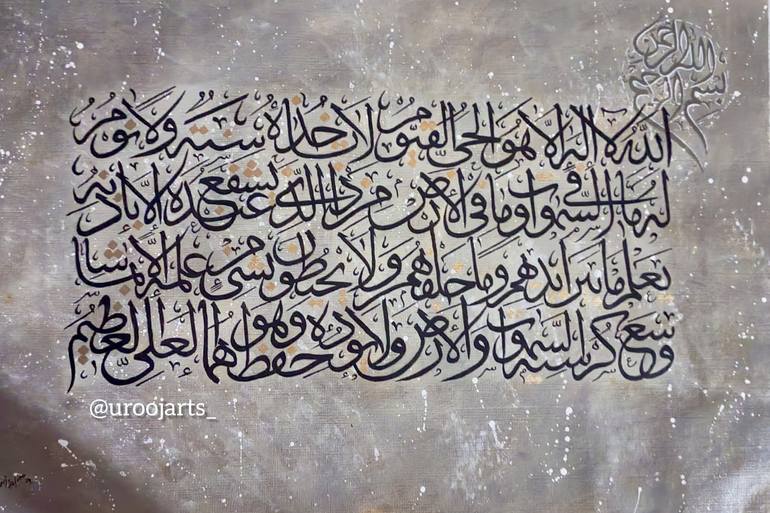 بسم الله الرحمن الرحيم
الله لا إله إلا هو الحي القيوم لا تأخذه سنة ولا نوم
له ما في السموات وما في الأرض من ذا الذي يشفع عنده إلا بإذنه
يعلم ما بين أيديهم وما خلفهم ولا يحيطون بشيء من علمه إلا بما شاء
وسع كرسيه السموات والأرض ولا يؤده حفظهما وهو العلي العظيم
@uroojarts_